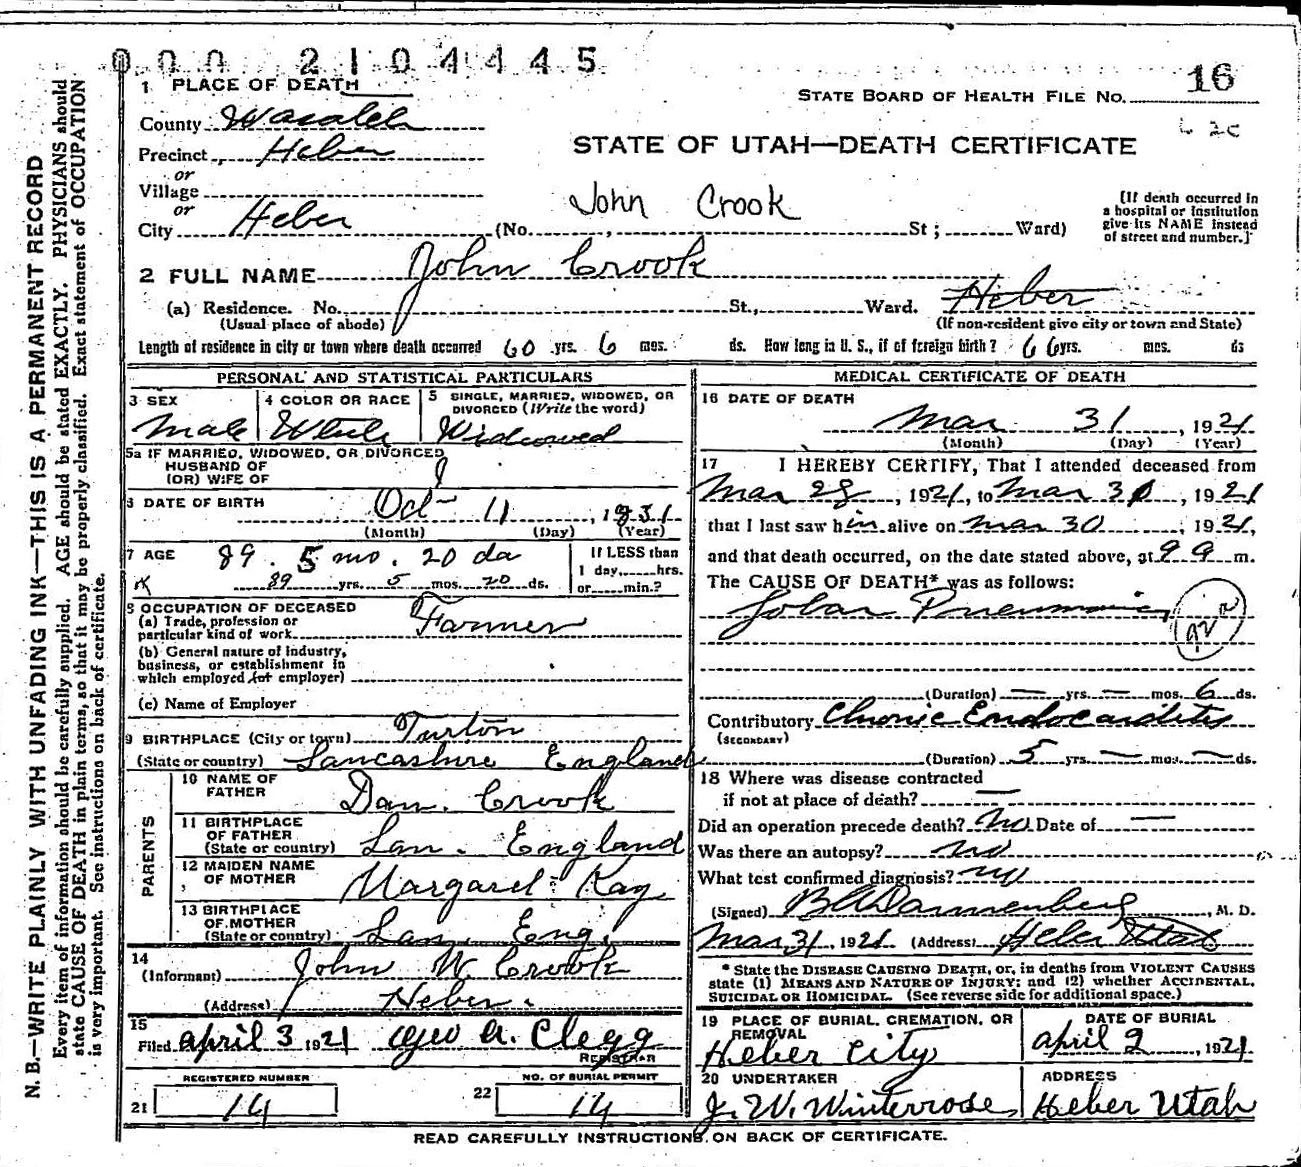 000 2104445
16
1 PLACE OF DEATH
STATE BOARD OF HEALTH FILE NO.
County Wasatch
STATE OF UTAH—DEATH CERTIFICATE
Precinct Heber
or
Village
or
John Crook
[If death occurred in a hospital or institution give its NAME instead of street and number.]
City Heber (No. , St ; Ward)
2 FULL NAME John Crook
(a) Residence. No. St., Ward. Heber
(Usual place of abode) (If non-resident give city or town and State)
Length of residence in city or town where death occurred 60 yrs. 6 mos. ds. How long in U. S., if of foreign birth? 66 yrs. mos. ds
PERSONAL AND STATISTICAL PARTICULARS
3 SEX Male
4 COLOR OR RACE White
5 SINGLE, MARRIED, WIDOWED, OR DIVORCED (Write the word) Widowed
5a IF MARRIED, WIDOWED, OR DIVORCED
HUSBAND OF
(OR) WIFE OF
6 DATE OF BIRTH Oct 11, 1831
(Month) (Day) (Year)
7 AGE 89. 5 mo. 20 da
89 yrs. 5 mos. 20 ds.
If LESS than
1 day, hrs.
or min.?
8 OCCUPATION OF DECEASED
(a) Trade, profession or
particular kind of work Farmer
(b) General nature of industry,
business, or establishment in
which employed (or employer)
(c) Name of Employer
9 BIRTHPLACE (City or town) Turton
(State or country) Lancashire England
PARENTS
10 NAME OF FATHER Dan. Crook
11 BIRTHPLACE OF FATHER (State or country) Lan. England
12 MAIDEN NAME OF MOTHER Margaret Kay
13 BIRTHPLACE OF MOTHER (State or country) Lan. Eng.
14
(Informant) John W. Crook
(Address) Heber.
15
Filed April 3 1921 Geo A. Clegg
REGISTRAR
REGISTERED NUMBER
21 14
NO. OF BURIAL PERMIT
22 14
MEDICAL CERTIFICATE OF DEATH
16 DATE OF DEATH
Mar 31, 1921
(Month) (Day) (Year)
17 I HEREBY CERTIFY, That I attended deceased from
Mar 28, 1921, to Mar 31, 1921
that I last saw him alive on Mar 30, 1921,
and that death occurred, on the date stated above, at 9 a m.
The CAUSE OF DEATH* was as follows:
Lobar Pneumonia
(Duration) — yrs. — mos. 6 ds.
Contributory Chronic Endocarditis
(SECONDARY)
(Duration) 5 yrs. — mos. — ds.
18 Where was disease contracted
if not at place of death? —
Did an operation precede death? No Date of —
Was there an autopsy? no
What test confirmed diagnosis? no
(Signed) Dannenberg, M. D.
Mar 31, 1921 (Address) Heber Utah
* State the DISEASE CAUSING DEATH, or, in deaths from VIOLENT CAUSES
state (1) MEANS AND NATURE OF INJURY; and (2) whether ACCIDENTAL,
SUICIDAL OR HOMICIDAL. (See reverse side for additional space.)
19 PLACE OF BURIAL, CREMATION, OR REMOVAL
Heber City
DATE OF BURIAL
April 2, 1921
20 UNDERTAKER
J. W. Winterrose
ADDRESS
Heber Utah
READ CAREFULLY INSTRUCTIONS ON BACK OF CERTIFICATE.
N. B.—WRITE PLAINLY WITH UNFADING INK—THIS IS A PERMANENT RECORD
Every item of information should be carefully supplied. AGE should be stated EXACTLY. PHYSICIANS should
state CAUSE OF DEATH in plain terms, so that it may be properly classified. Exact statement of OCCUPATION
is very important. See instructions on back of certificate.